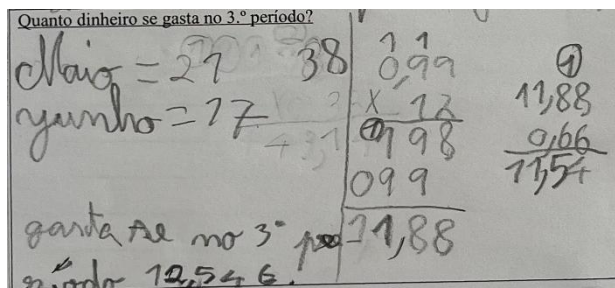 Quanto dinheiro se gasta no 3.º período?
Maio = 21 38
junho = 17
0,99
x 12
198
099
11,88
1
11,88
0,66
11,54
gasta se no 3º pe
ríodo 12,54 €.